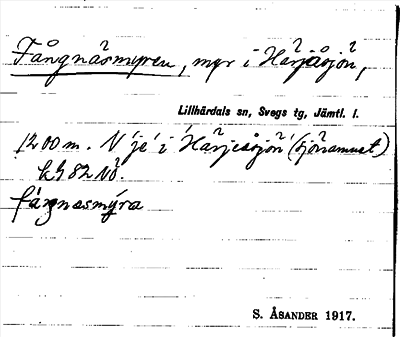 Fångnäsmyren, myr i Härjåsjön,
Lillhärdals sn, Svegs tg, Jämtl. l.
1200 m. N je i Härjeåsjön (sjönamnet)
kg 82 NÖ.
fángnasmýra
S. ÅSANDER 1917.